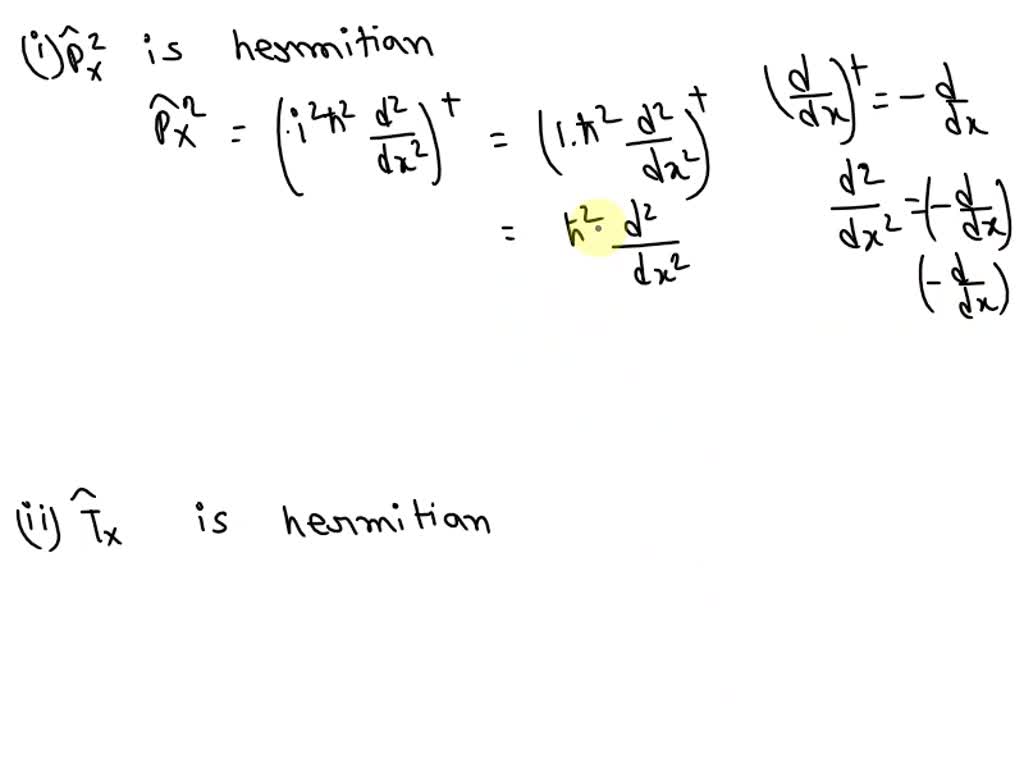 (i) P̂ₓ² is hermitian
P̂ₓ² = (i²ħ² d²/dx²)† = (1.ħ² d²/dx²)†
= ħ² d²/dx²
(d/dx)† = - d/dx
d²/dx² = (-d/dx)
(-d/dx)
(ii) T̂ₓ is hermitian